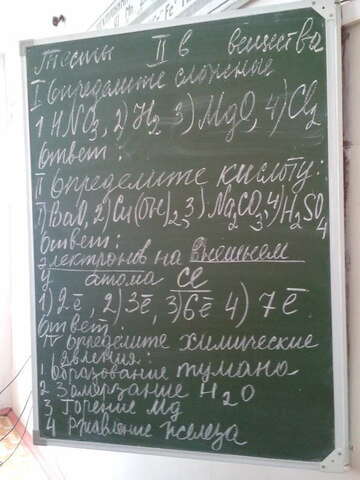 Тесты II в вещества
I Определите сложные
1 HNO3, 2) H2 3) MgO, 4) Cl2
Ответ:
II Определите кислоту:
1) BaO, 2) Cu(OH)2, 3) Na2CO3, 4) H2SO4
Ответ:
Электронов на внешнем
у атома Ce
1) 2ē, 2) 3ē, 3) 6ē 4) 7ē
Ответ
IV Определите химические
явления:
1. Образование тумана
2 Замерзание H2O
3 Горение Mg
4 Ржавление железа